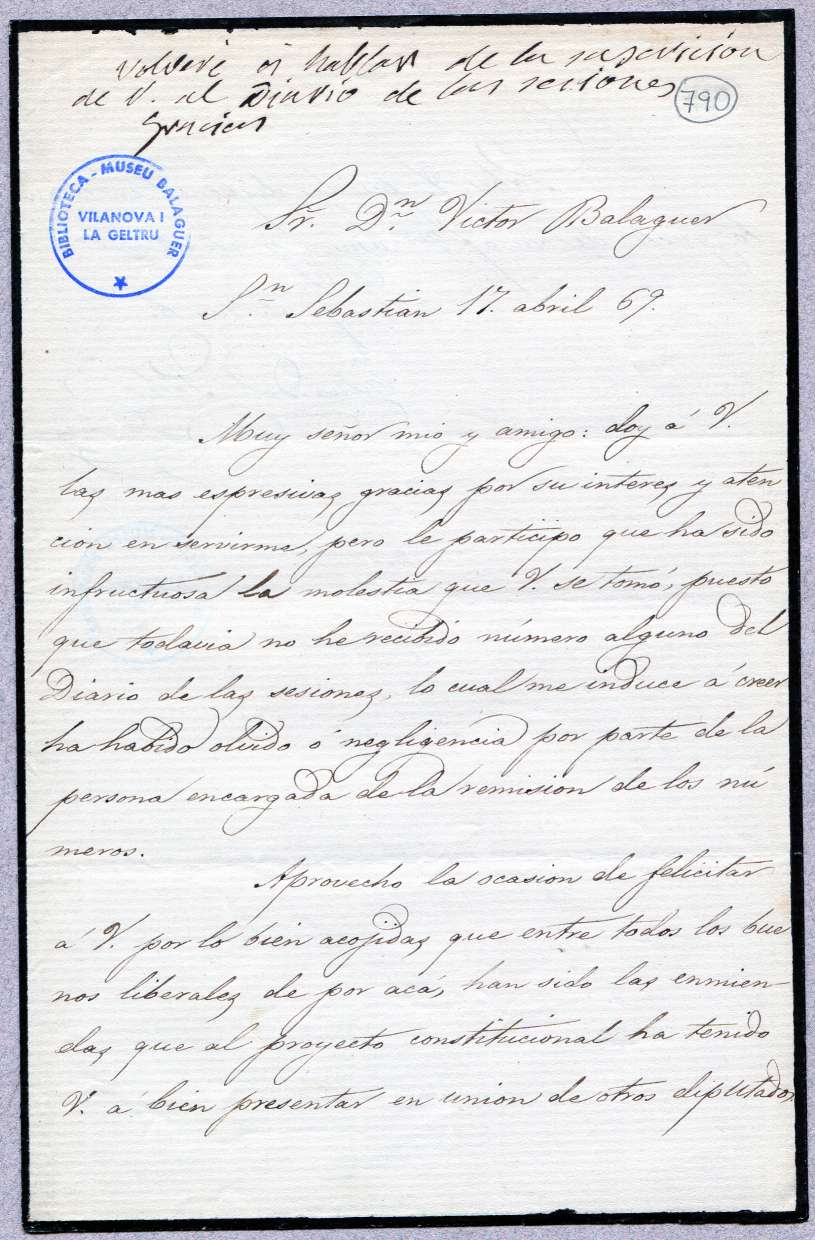 Volveré á hablar de la suscrición
de V. al Diario de las sesiones
Gracias
790
BIBLIOTECA - MUSEU BALAGUER
VILANOVA I
LA GELTRU
Sr. Dn. Victor Balaguer
Sn. Sebastian 17. abril 69.
Muy señor mio y amigo: doy á V.
las mas espresivas gracias por su interes y aten
cion en servirme, pero le participo que ha sido
infructuosa la molestia que V. se tomó, puesto
que todavia no he recibido número alguno del
Diario de las sesiones, lo cual me induce á creer
ha habido olvido ó negligencia por parte de la
persona encargada de la remision de los nú
meros.
Aprovecho la ocasion de felicitar
á V. por lo bien acojidas que entre todos los bue
nos liberales de por acá, han sido las enmien-
das que al proyecto constitucional ha tenido
V. á bien presentar en union de otros diputados